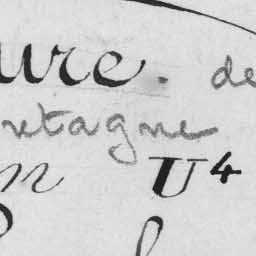 ure. de
retagne
n U4